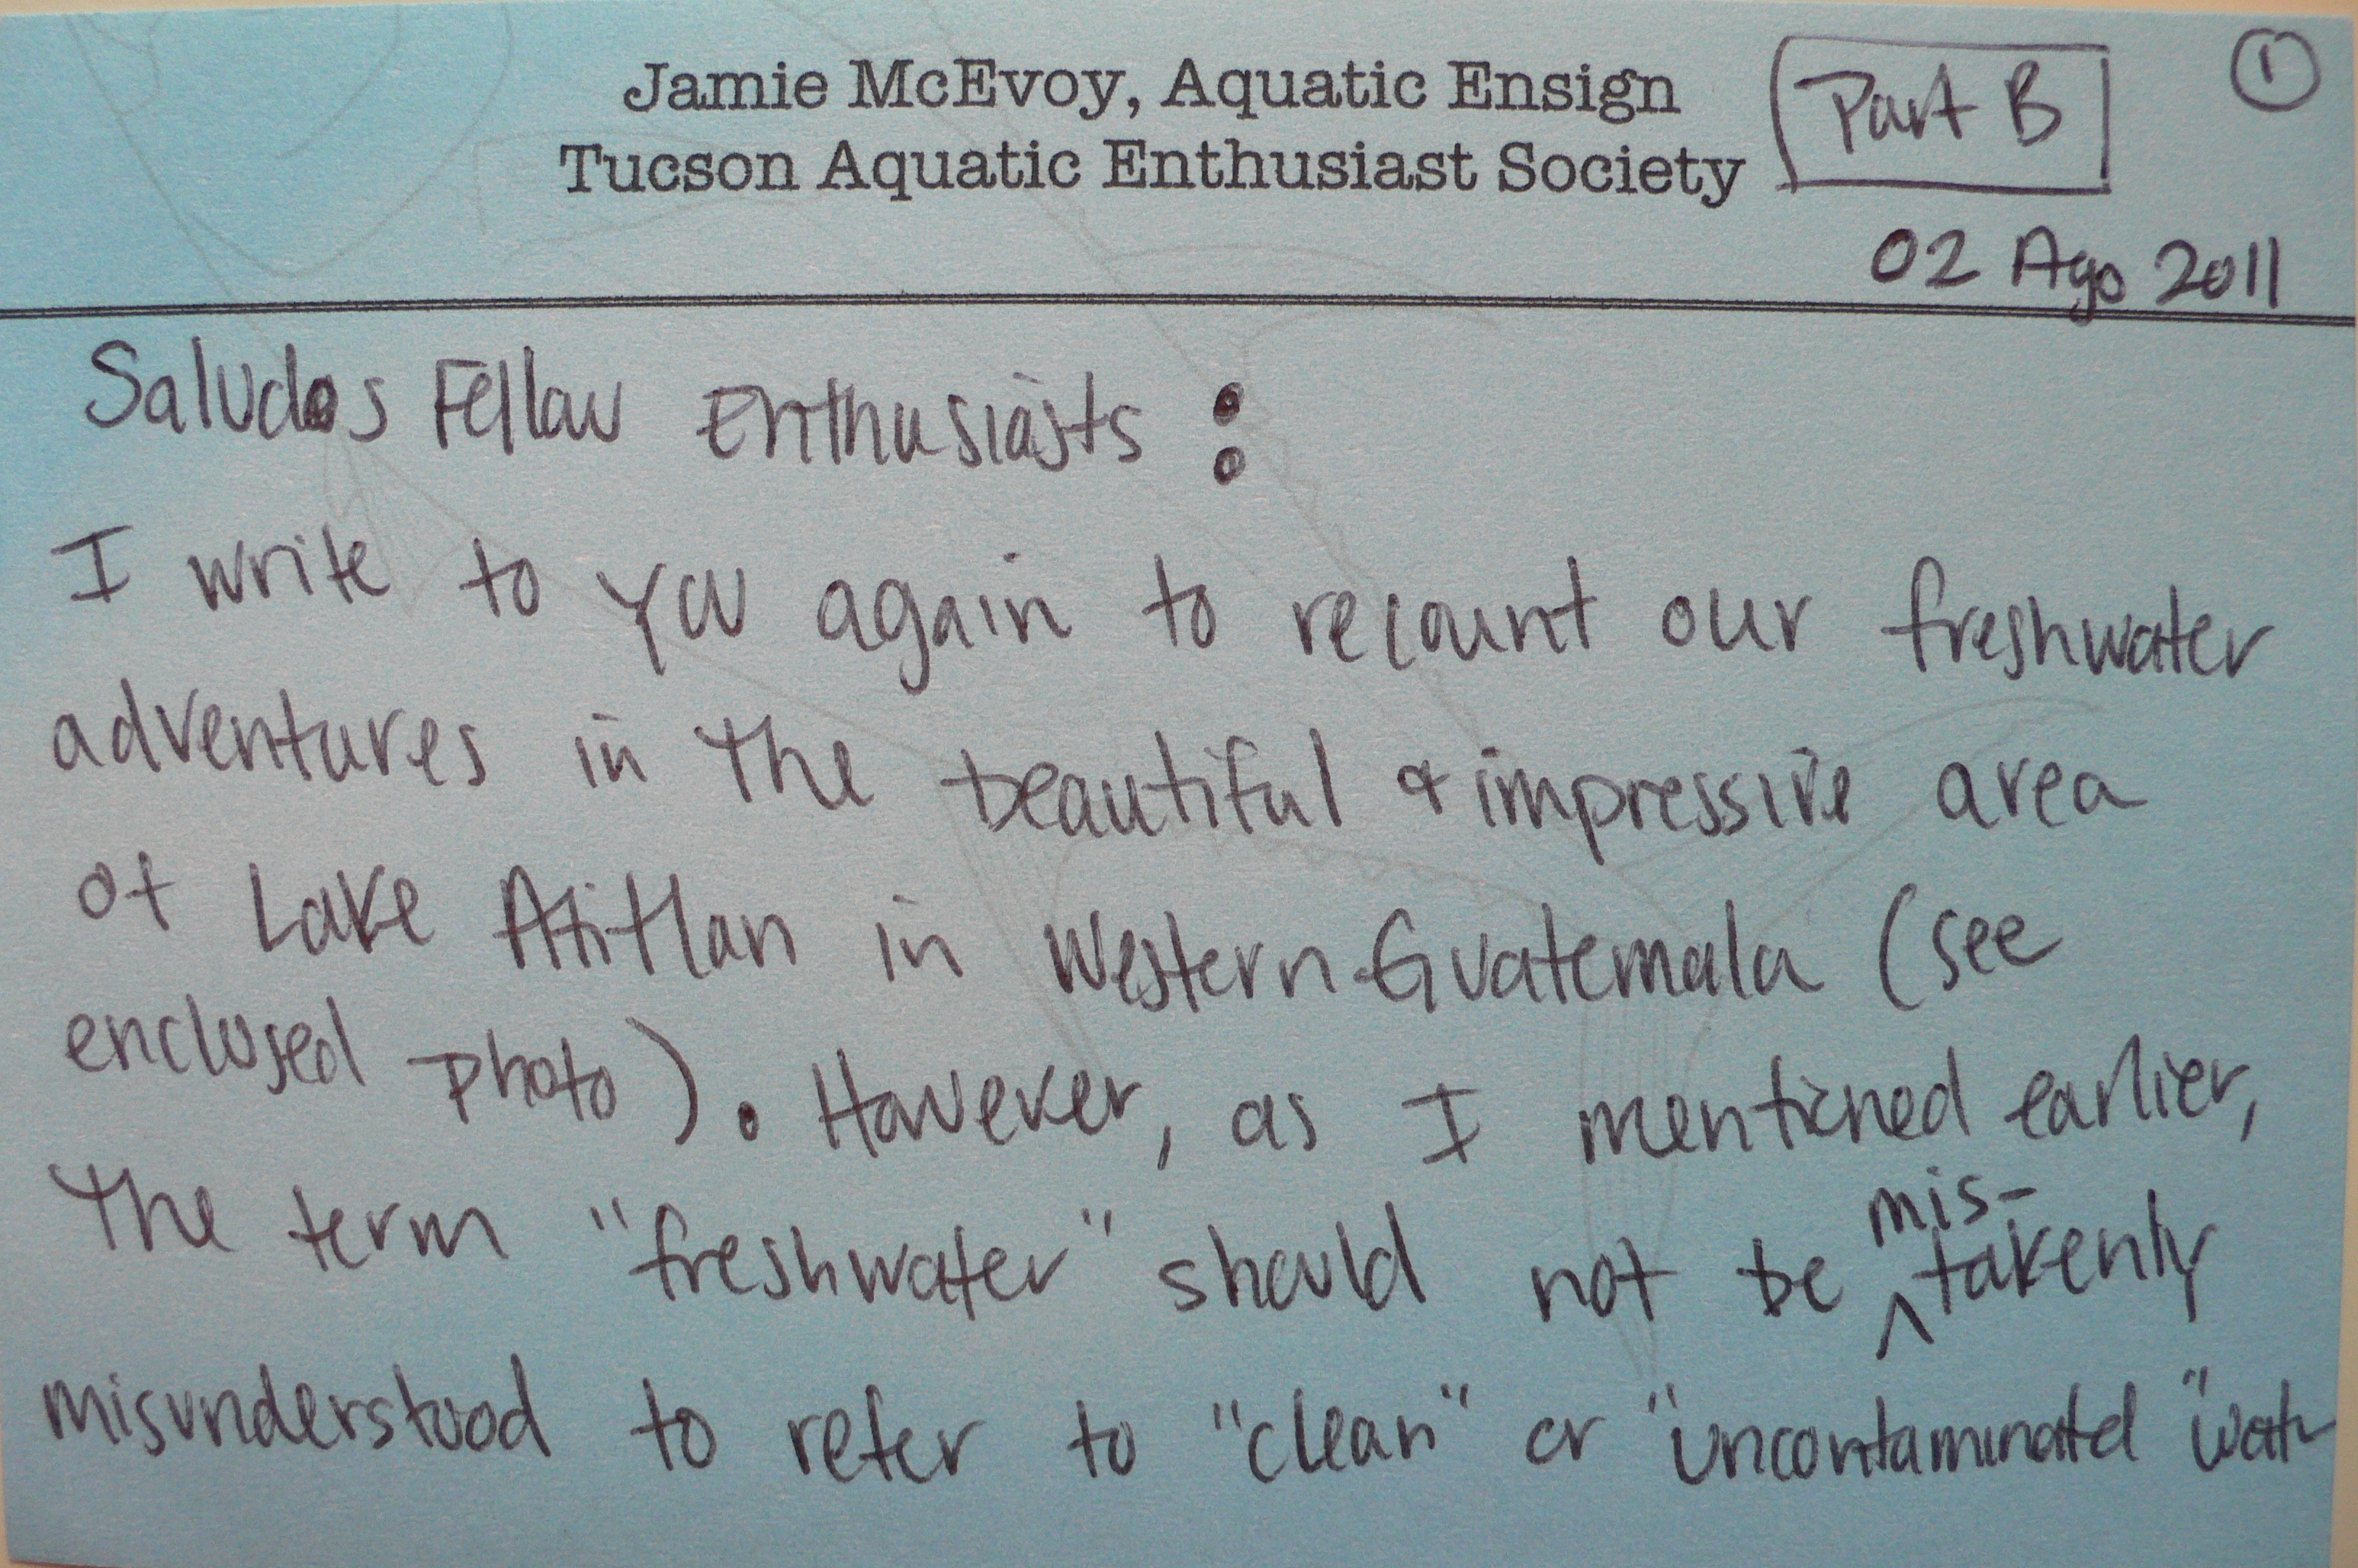 Jamie McEvoy, Aquatic Ensign
Tucson Aquatic Enthusiast Society
Part B
1
02 Ago 2011
Saludos Fellow Enthusiasts:
I write to you again to recount our freshwater
adventures in the beautiful & impressive area
of Lake Atitlan in Western Guatemala (see
enclosed photo). However, as I mentioned earlier,
the term "freshwater" should not be mis-takenly
misunderstood to refer to "clean" or "uncontaminated" wat